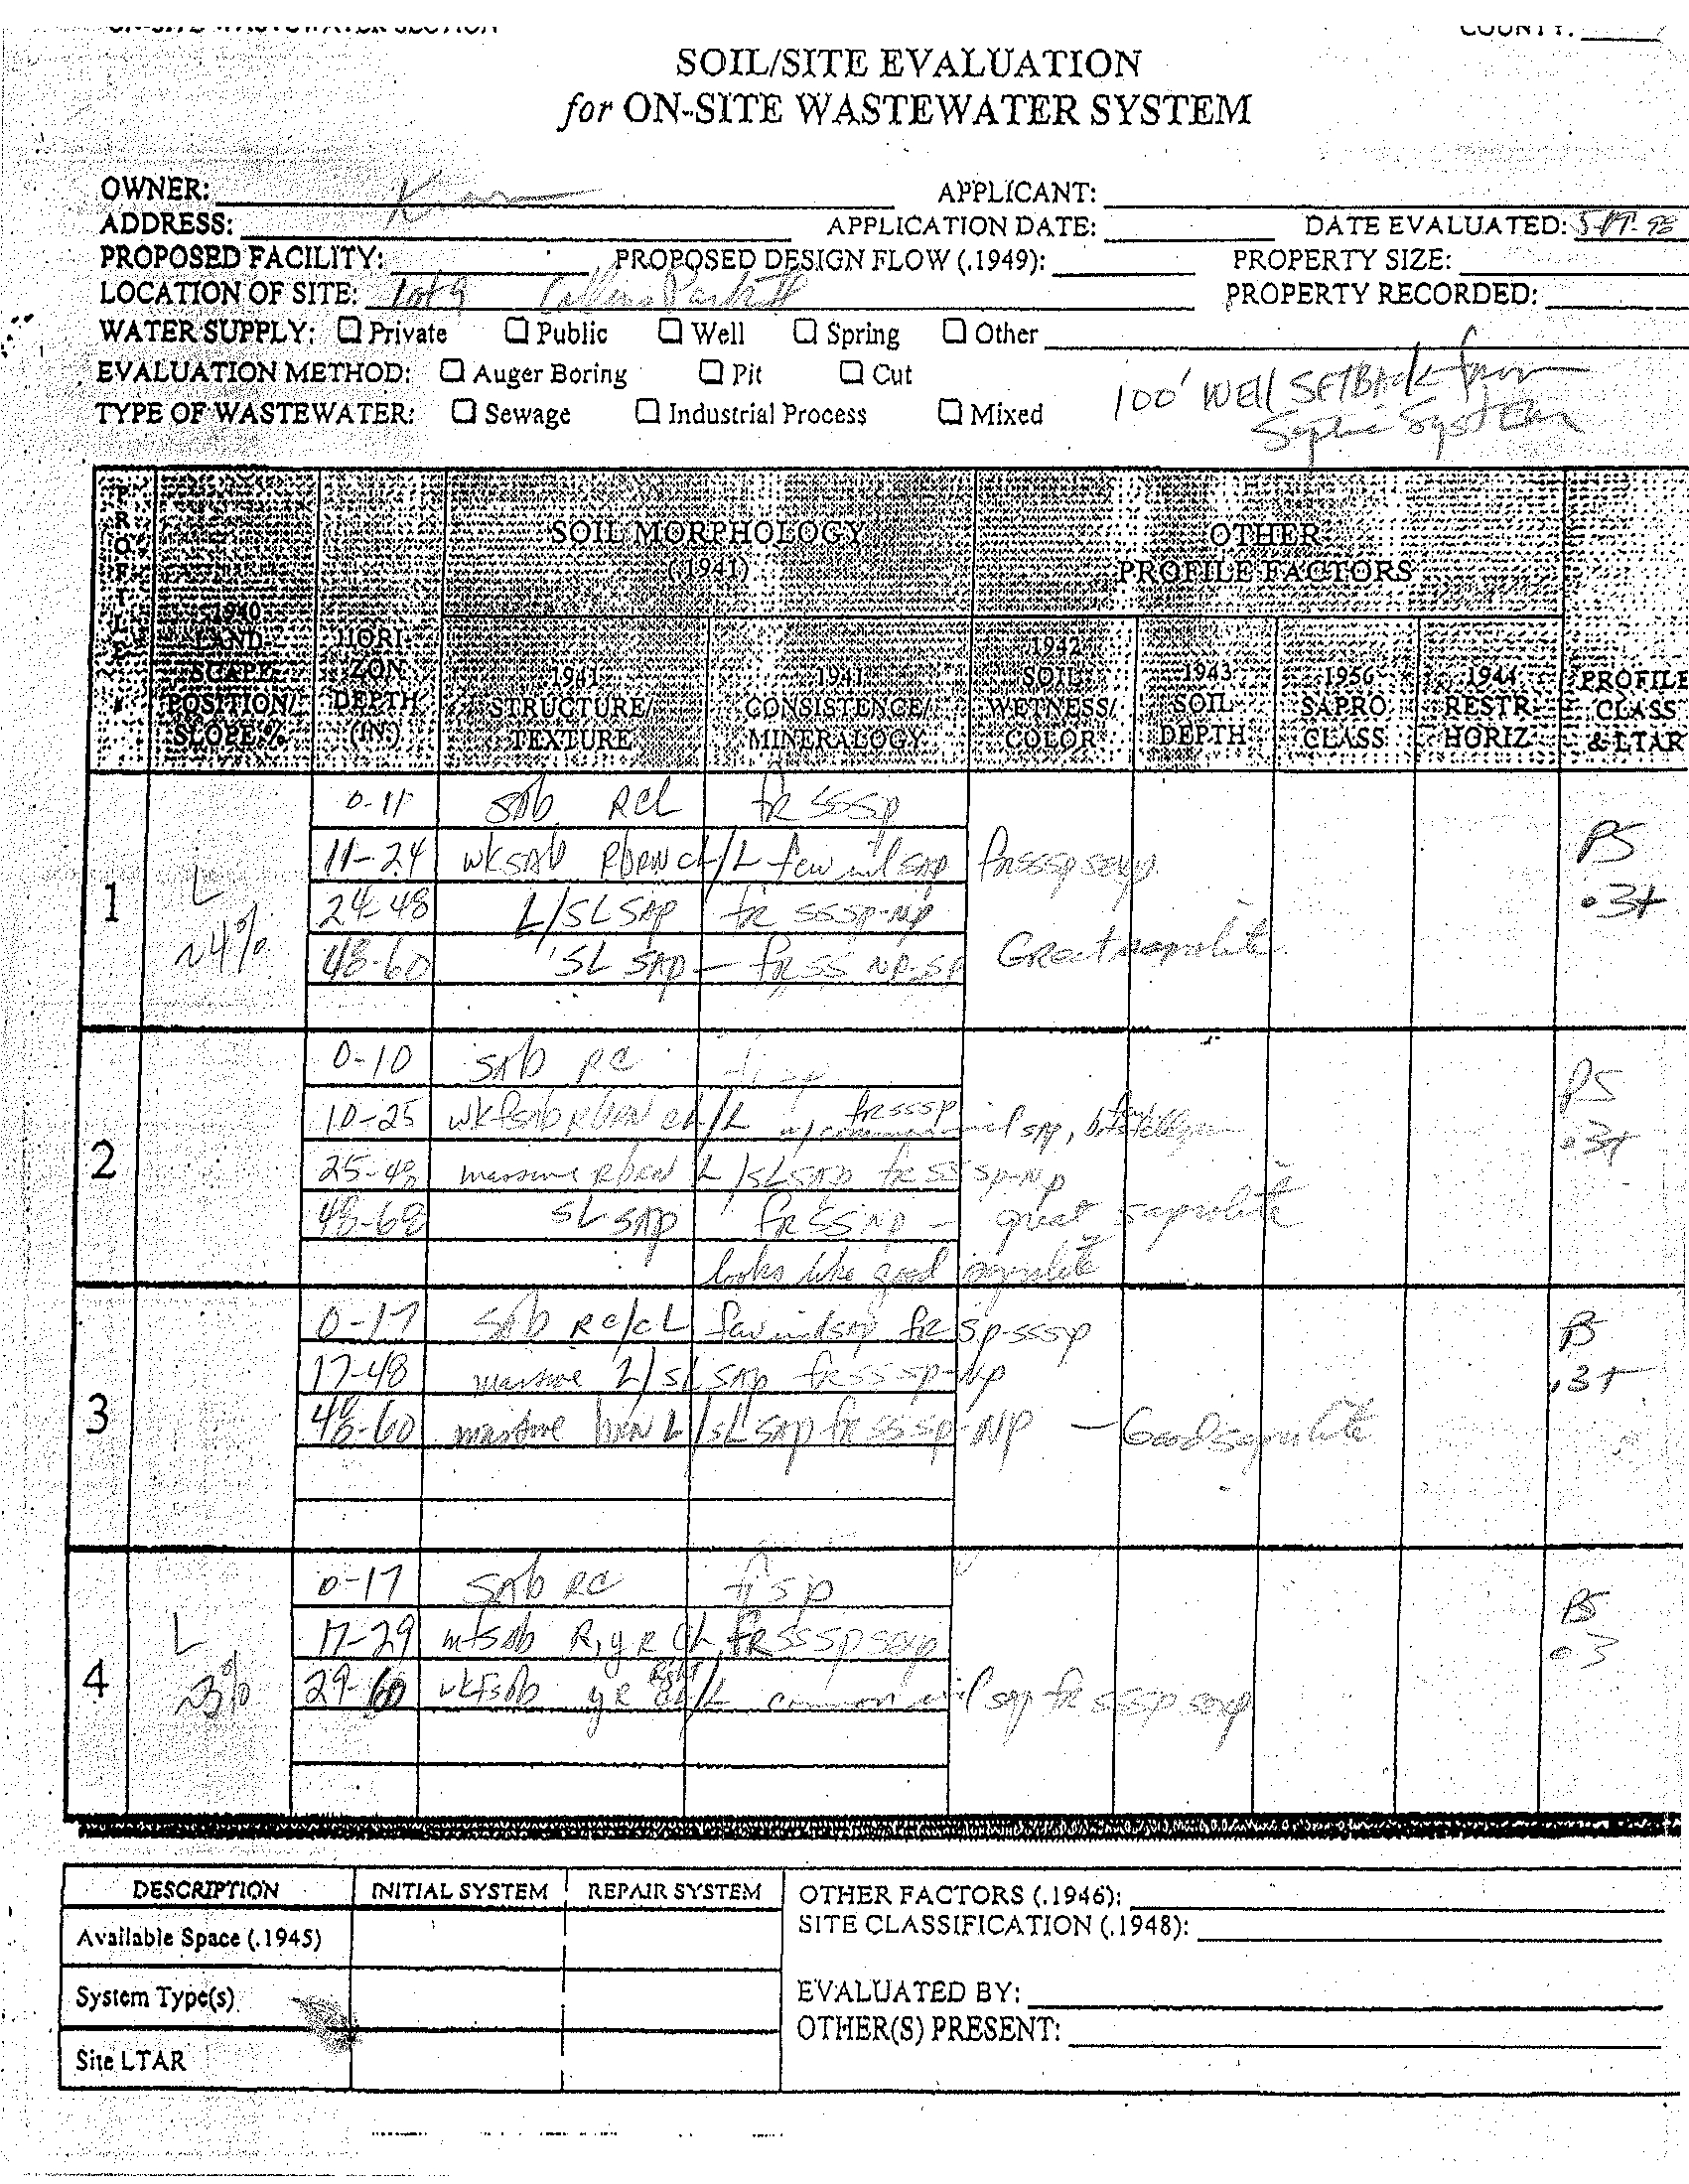 ON-SITE WASTEWATER SECTION COUNTY:
SOIL/SITE EVALUATION
for ON-SITE WASTEWATER SYSTEM
OWNER: APPLICANT:
ADDRESS: APPLICATION DATE: DATE EVALUATED:
PROPOSED FACILITY: PROPOSED DESIGN FLOW (.1949): PROPERTY SIZE:
LOCATION OF SITE: Lot 9 PROPERTY RECORDED:
WATER SUPPLY: Private Public Well Spring Other
EVALUATION METHOD: Auger Boring Pit Cut
TYPE OF WASTEWATER: Sewage Industrial Process Mixed
100' WEll SETBACK from
Septic System
PROFILE #
.1940 LANDSCAPE POSITION/ SLOPE %
HORIZON DEPTH (IN.)
SOIL MORPHOLOGY
(.1941)
OTHER
PROFILE FACTORS
.1941 STRUCTURE/ TEXTURE
.1941 CONSISTENCE/ MINERALOGY
.1942 SOIL WETNESS/ COLOR
.1943 SOIL DEPTH
.1956 SAPRO CLASS
.1944 RESTR HORIZ
PROFILE CLASS & LTAR
1 L ~4%
0-11 SAb RCL fr SSSp PS .3+
11-24 wksAb RbRN CL/L few sap frsssp sexp
24-48 L/SL SAp fr SSSP-Np
48-60 SL SAp - fr SS NP-SP Great saprolite
2
0-10 SAb RC PS .3+
10-25 wkfsab RbRN CL/L frsssp
25-48 massive RbRN L/SL SAp fr SS Sp-Np
48-68 SL SAp fr SS Np - great saprolite
looks like good saprolite
3
0-17 SAb RC/CL fr Sp-SSSp PS .3+
17-48 massive L/SL SAp fr SS Sp-Np
48-60 massive bRN L/SL SAp fr SS Sp-NP - Good saprolite
4 L ~3%
0-17 SAb RC fi Sp PS .3
17-29 R, yR CL fR SSSp sexp
29-60 wkfsab yR CL/L common sap fr SSSp sexp
DESCRIPTION INITIAL SYSTEM REPAIR SYSTEM
Available Space (.1945)
System Type(s)
Site LTAR
OTHER FACTORS (.1946):
SITE CLASSIFICATION (.1948):
EVALUATED BY:
OTHER(S) PRESENT: